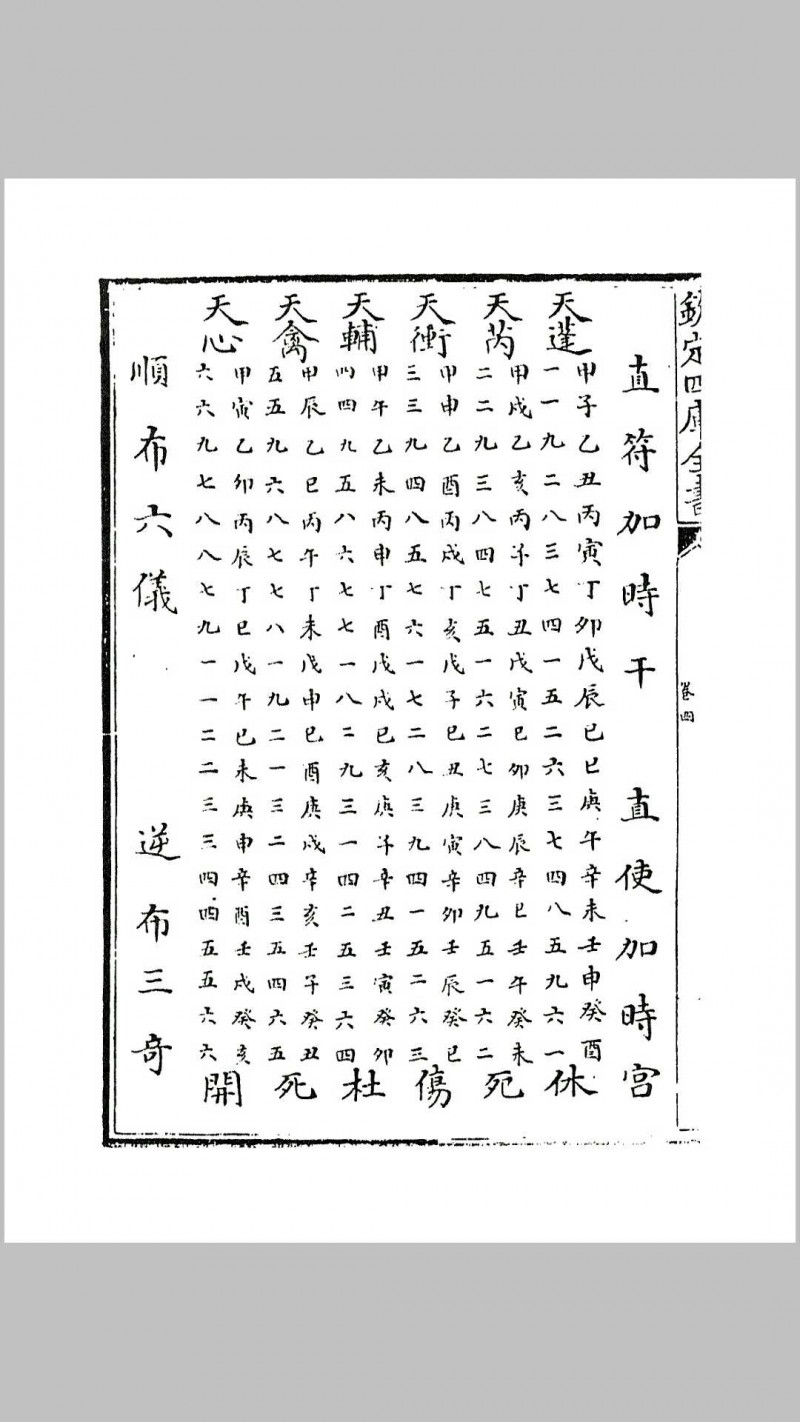 欽定四庫全書
卷四
直符加時干 直使加時宮
天蓬
甲子乙丑丙寅丁卯戊辰己巳庚午辛未壬申癸酉
一一九二八三七四一五二六三七四八五九六一
休
天芮
甲戌乙亥丙子丁丑戊寅己卯庚辰辛巳壬午癸未
二二九三八四七五一六二七三八四九五一六二
死
天衝
甲申乙酉丙戌丁亥戊子己丑庚寅辛卯壬辰癸巳
三三九四八五七六一七二八三九四一五二六三
傷
天輔
甲午乙未丙申丁酉戊戌己亥庚子辛丑壬寅癸卯
四四九五八六七七一八二九三一四二五三六四
杜
天禽
甲辰乙巳丙午丁未戊申己酉庚戌辛亥壬子癸丑
五五九六八七七八一九二一三二四三五四六五
死
天心
甲寅乙卯丙辰丁巳戊午己未庚申辛酉壬戌癸亥
六六九七八八七九一一二二三三四四五五六六
開
順布六儀 逆布三奇